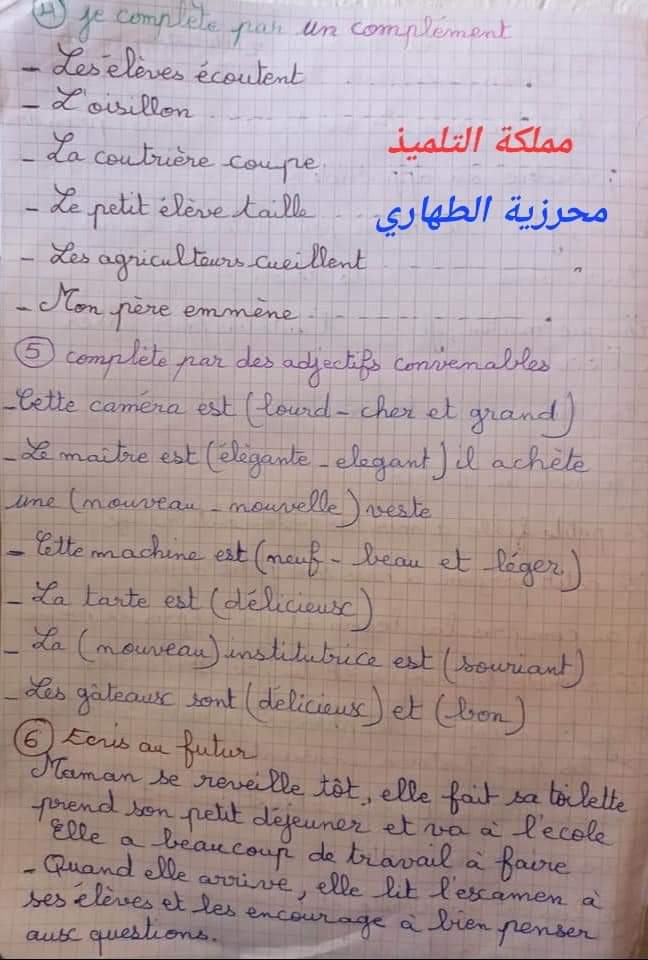 ④ Je complète par un complément
- Les élèves écoutent ............ .
- L'oisillon ............ .
- La coutrière coupe ............ .
مملكة التلميذ
- Le petit élève taille ............
محرزية الطهاري
- Les agriculteurs cueillent ............
- Mon père emmène ............ .
⑤ complète par des adjectifs convenables
- Cette caméra est (lourd - cher et grand)
- Le maître est (élégante - elegant) il achète
une (nouveau - nouvelle) veste
- Cette machine est (neuf - beau et léger)
- La tarte est (délicieux)
- La (nouveau) institutrice est (souriant)
- Les gâteaux sont (délicieux) et (bon)
⑥ Ecris au futur
Maman se reveille tôt, elle fait sa toilette
prend son petit déjeuner et va à l'école
Elle a beaucoup de travail à faire
- Quand elle arrive, elle lit l'examen à
ses élèves et les encourage à bien penser
aux questions.